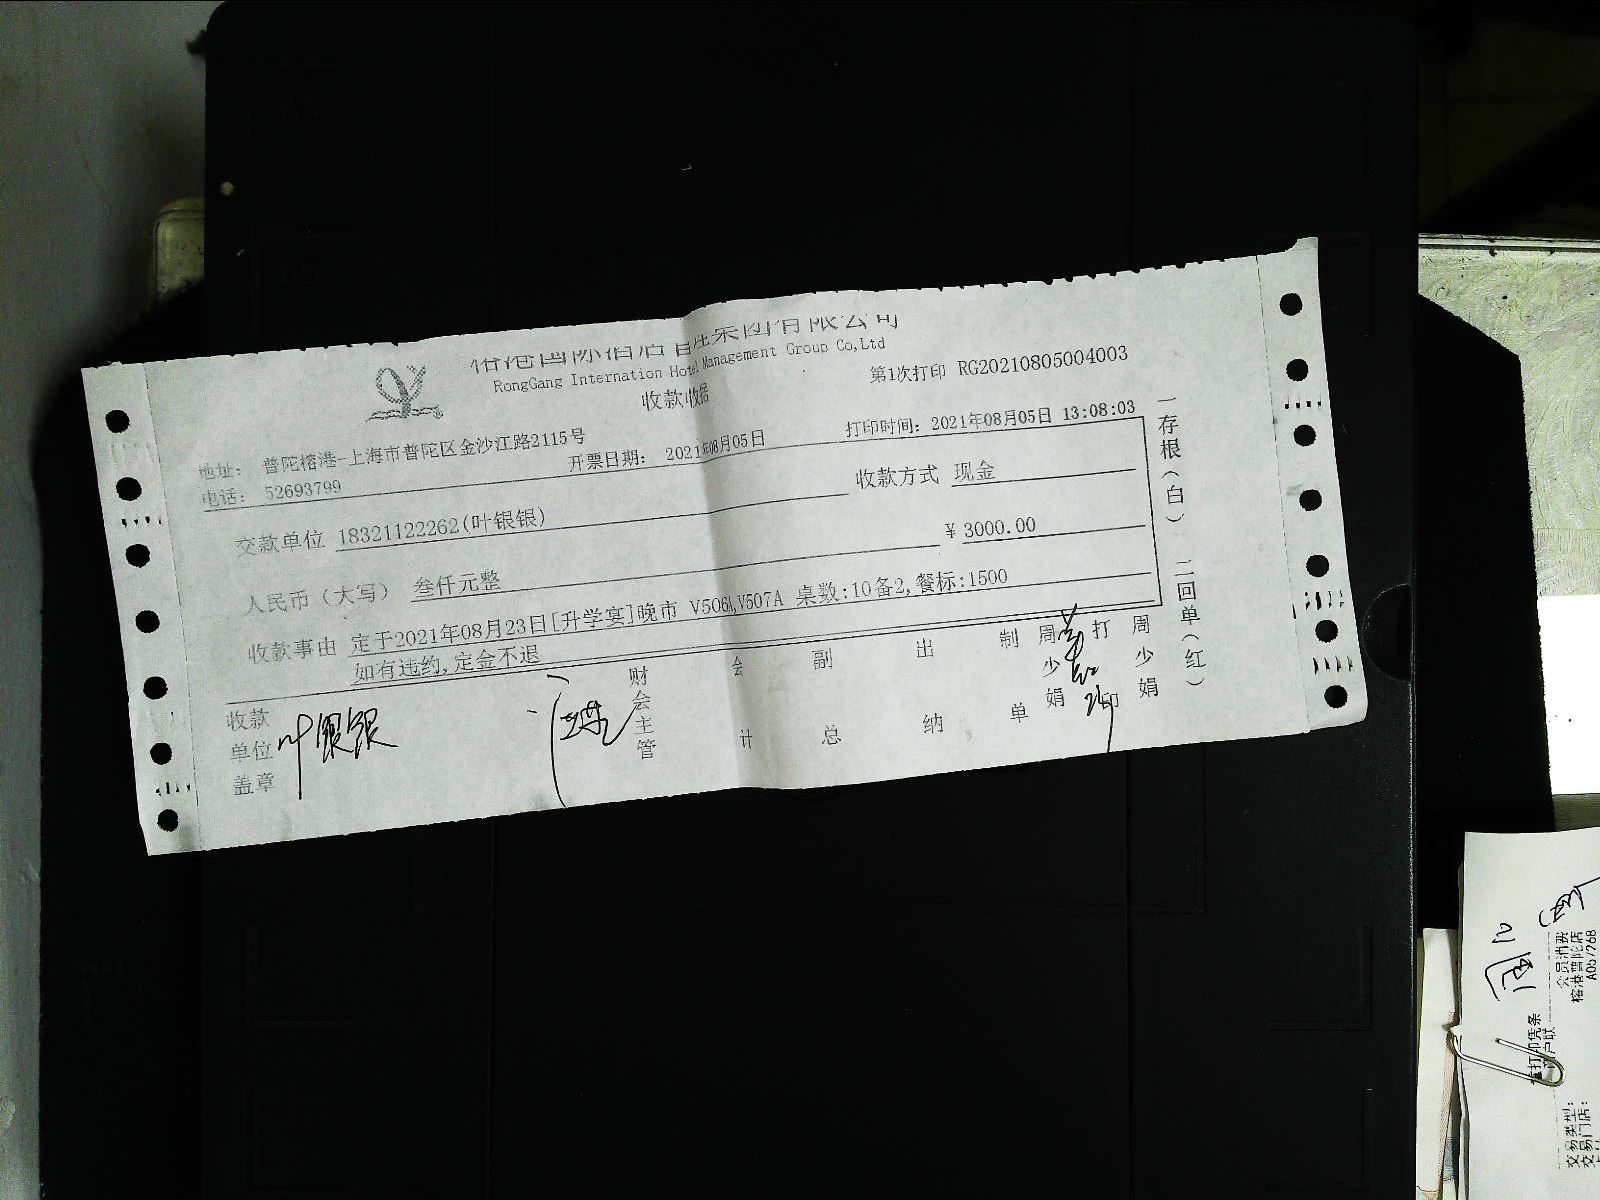 榕港国际酒店管理集团有限公司
RongGang Internation Hotel Management Group Co,Ltd
收款收据
第1次打印 RG20210805004003
地址: 普陀榕港-上海市普陀区金沙江路2115号
电话: 52693799
开票日期: 2021年08月05日
打印时间: 2021年08月05日 13:08:03
交款单位 18321122262(叶银银)
收款方式 现金
人民币(大写) 叁仟元整
¥ 3000.00
收款事由 定于2021年08月23日[升学宴]晚市 V506A,V507A 桌数:10备2,餐标:1500
如有违约,定金不退
收款单位盖章
叶银银
财会主管
会计
副总
出纳
制单
周少娟
打印
周少娟
一存根(白) 二回单(红)
会员消费
榕港普陀店
A057268
打印凭条
交易类型:
交易门店: